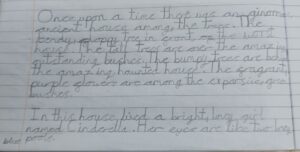 Once upon a time that was an ginormous
ancient house among the trees. The
bendy, tree in front of the best
house. The tall trees are over the amazing
outstanding bushes. The bumpy trees are
the amazing haunted house. The fragrant
purple flowers are among the expansive green
bushes.
In this house lived a bright, long girl
named Cinderella. Her eyes are like two big
blue pools.